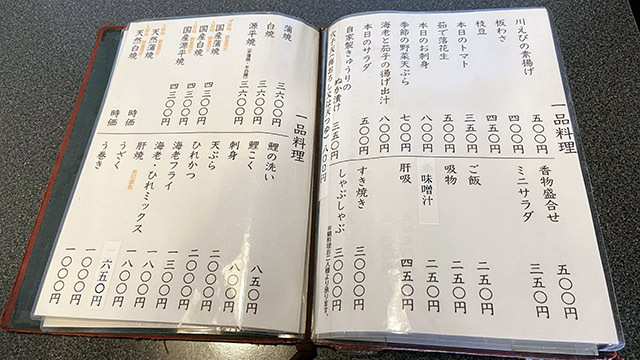 一品料理
川えびの素揚げ 五〇〇円
板わさ 四〇〇円
枝豆 四五〇円
本日のトマト 三五〇円
茹で落花生 五〇〇円
本日のお刺身 八〇〇円
季節の野菜天ぷら 七〇〇円
海老と茄子の揚げ出汁 八〇〇円
本日のサラダ 五〇〇円
自家製きゅうりの
ぬか漬け 三五〇円
八〇〇円
香物盛合せ 五〇〇円
ミニサラダ 三五〇円
ご飯 二五〇円
吸物 二五〇円
味噌汁 二五〇円
肝吸 四五〇円
すき焼き 三〇〇〇円
しゃぶしゃぶ 三〇〇〇円
※鍋料理お二人様より承ります。
一品料理
蒲焼 三六〇〇円
白焼 三六〇〇円
源平焼 三六〇〇円
国産蒲焼 四三〇〇円
国産白焼 四三〇〇円
国産源平焼 四三〇〇円
天然蒲焼 時価
天然白焼 時価
鯉の洗い 八五〇円
鯉こく 八〇〇円
刺身 二〇〇〇円
天ぷら 二〇〇〇円
ひれかつ 一三〇〇円
海老フライ 一八〇〇円
海老・ひれミックス 一八〇〇円
肝焼 六五〇円
うざく 一〇〇〇円
う巻き 一〇〇〇円